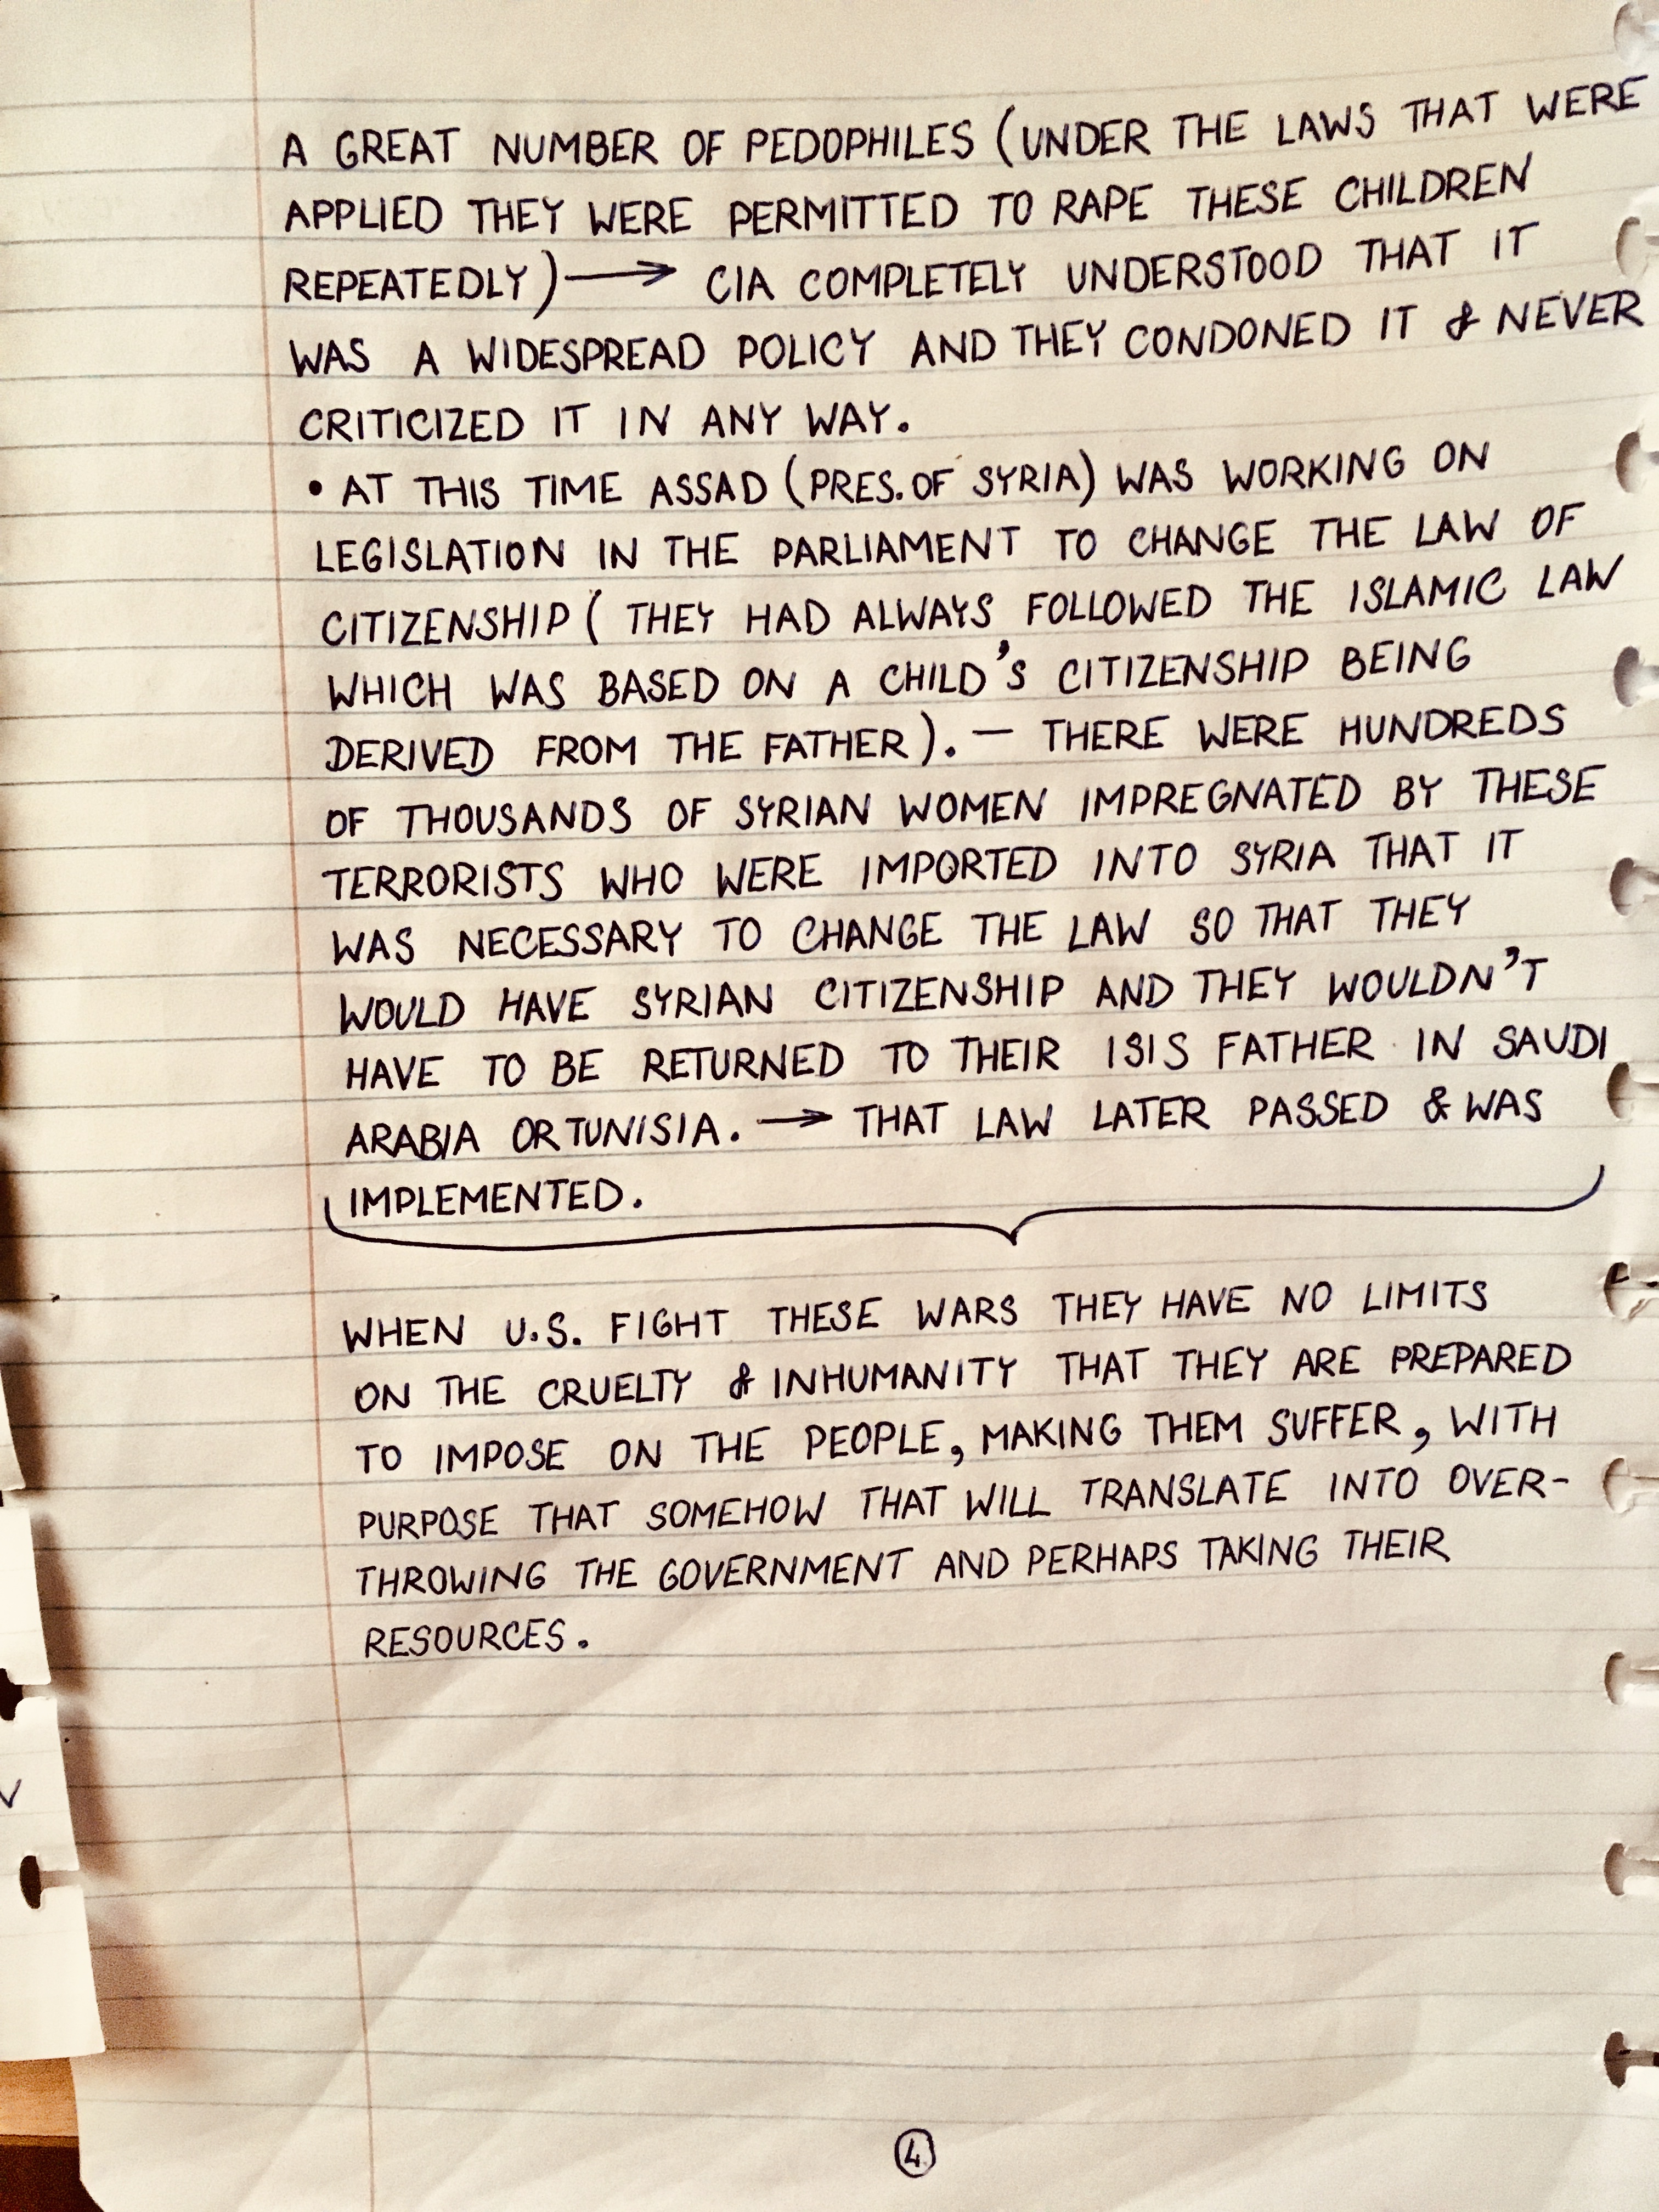 A GREAT NUMBER OF PEDOPHILES (UNDER THE LAWS THAT WERE
APPLIED THEY WERE PERMITTED TO RAPE THESE CHILDREN
REPEATEDLY) → CIA COMPLETELY UNDERSTOOD THAT IT
WAS A WIDESPREAD POLICY AND THEY CONDONED IT & NEVER
CRITICIZED IT IN ANY WAY.
• AT THIS TIME ASSAD (PRES. OF SYRIA) WAS WORKING ON
LEGISLATION IN THE PARLIAMENT TO CHANGE THE LAW OF
CITIZENSHIP ( THEY HAD ALWAYS FOLLOWED THE ISLAMIC LAW
WHICH WAS BASED ON A CHILD'S CITIZENSHIP BEING
DERIVED FROM THE FATHER). — THERE WERE HUNDREDS
OF THOUSANDS OF SYRIAN WOMEN IMPREGNATED BY THESE
TERRORISTS WHO WERE IMPORTED INTO SYRIA THAT IT
WAS NECESSARY TO CHANGE THE LAW SO THAT THEY
WOULD HAVE SYRIAN CITIZENSHIP AND THEY WOULDN'T
HAVE TO BE RETURNED TO THEIR ISIS FATHER IN SAUDI
ARABIA OR TUNISIA. → THAT LAW LATER PASSED & WAS
IMPLEMENTED.
WHEN U.S. FIGHT THESE WARS THEY HAVE NO LIMITS
ON THE CRUELTY & INHUMANITY THAT THEY ARE PREPARED
TO IMPOSE ON THE PEOPLE, MAKING THEM SUFFER, WITH
PURPOSE THAT SOMEHOW THAT WILL TRANSLATE INTO OVER-
THROWING THE GOVERNMENT AND PERHAPS TAKING THEIR
RESOURCES.
4